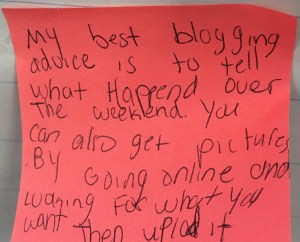 My best blogging
advice is to tell
what Happend over
The weekend. You
can also get pictures
By Going online and
looking For what you
want Then uplod it